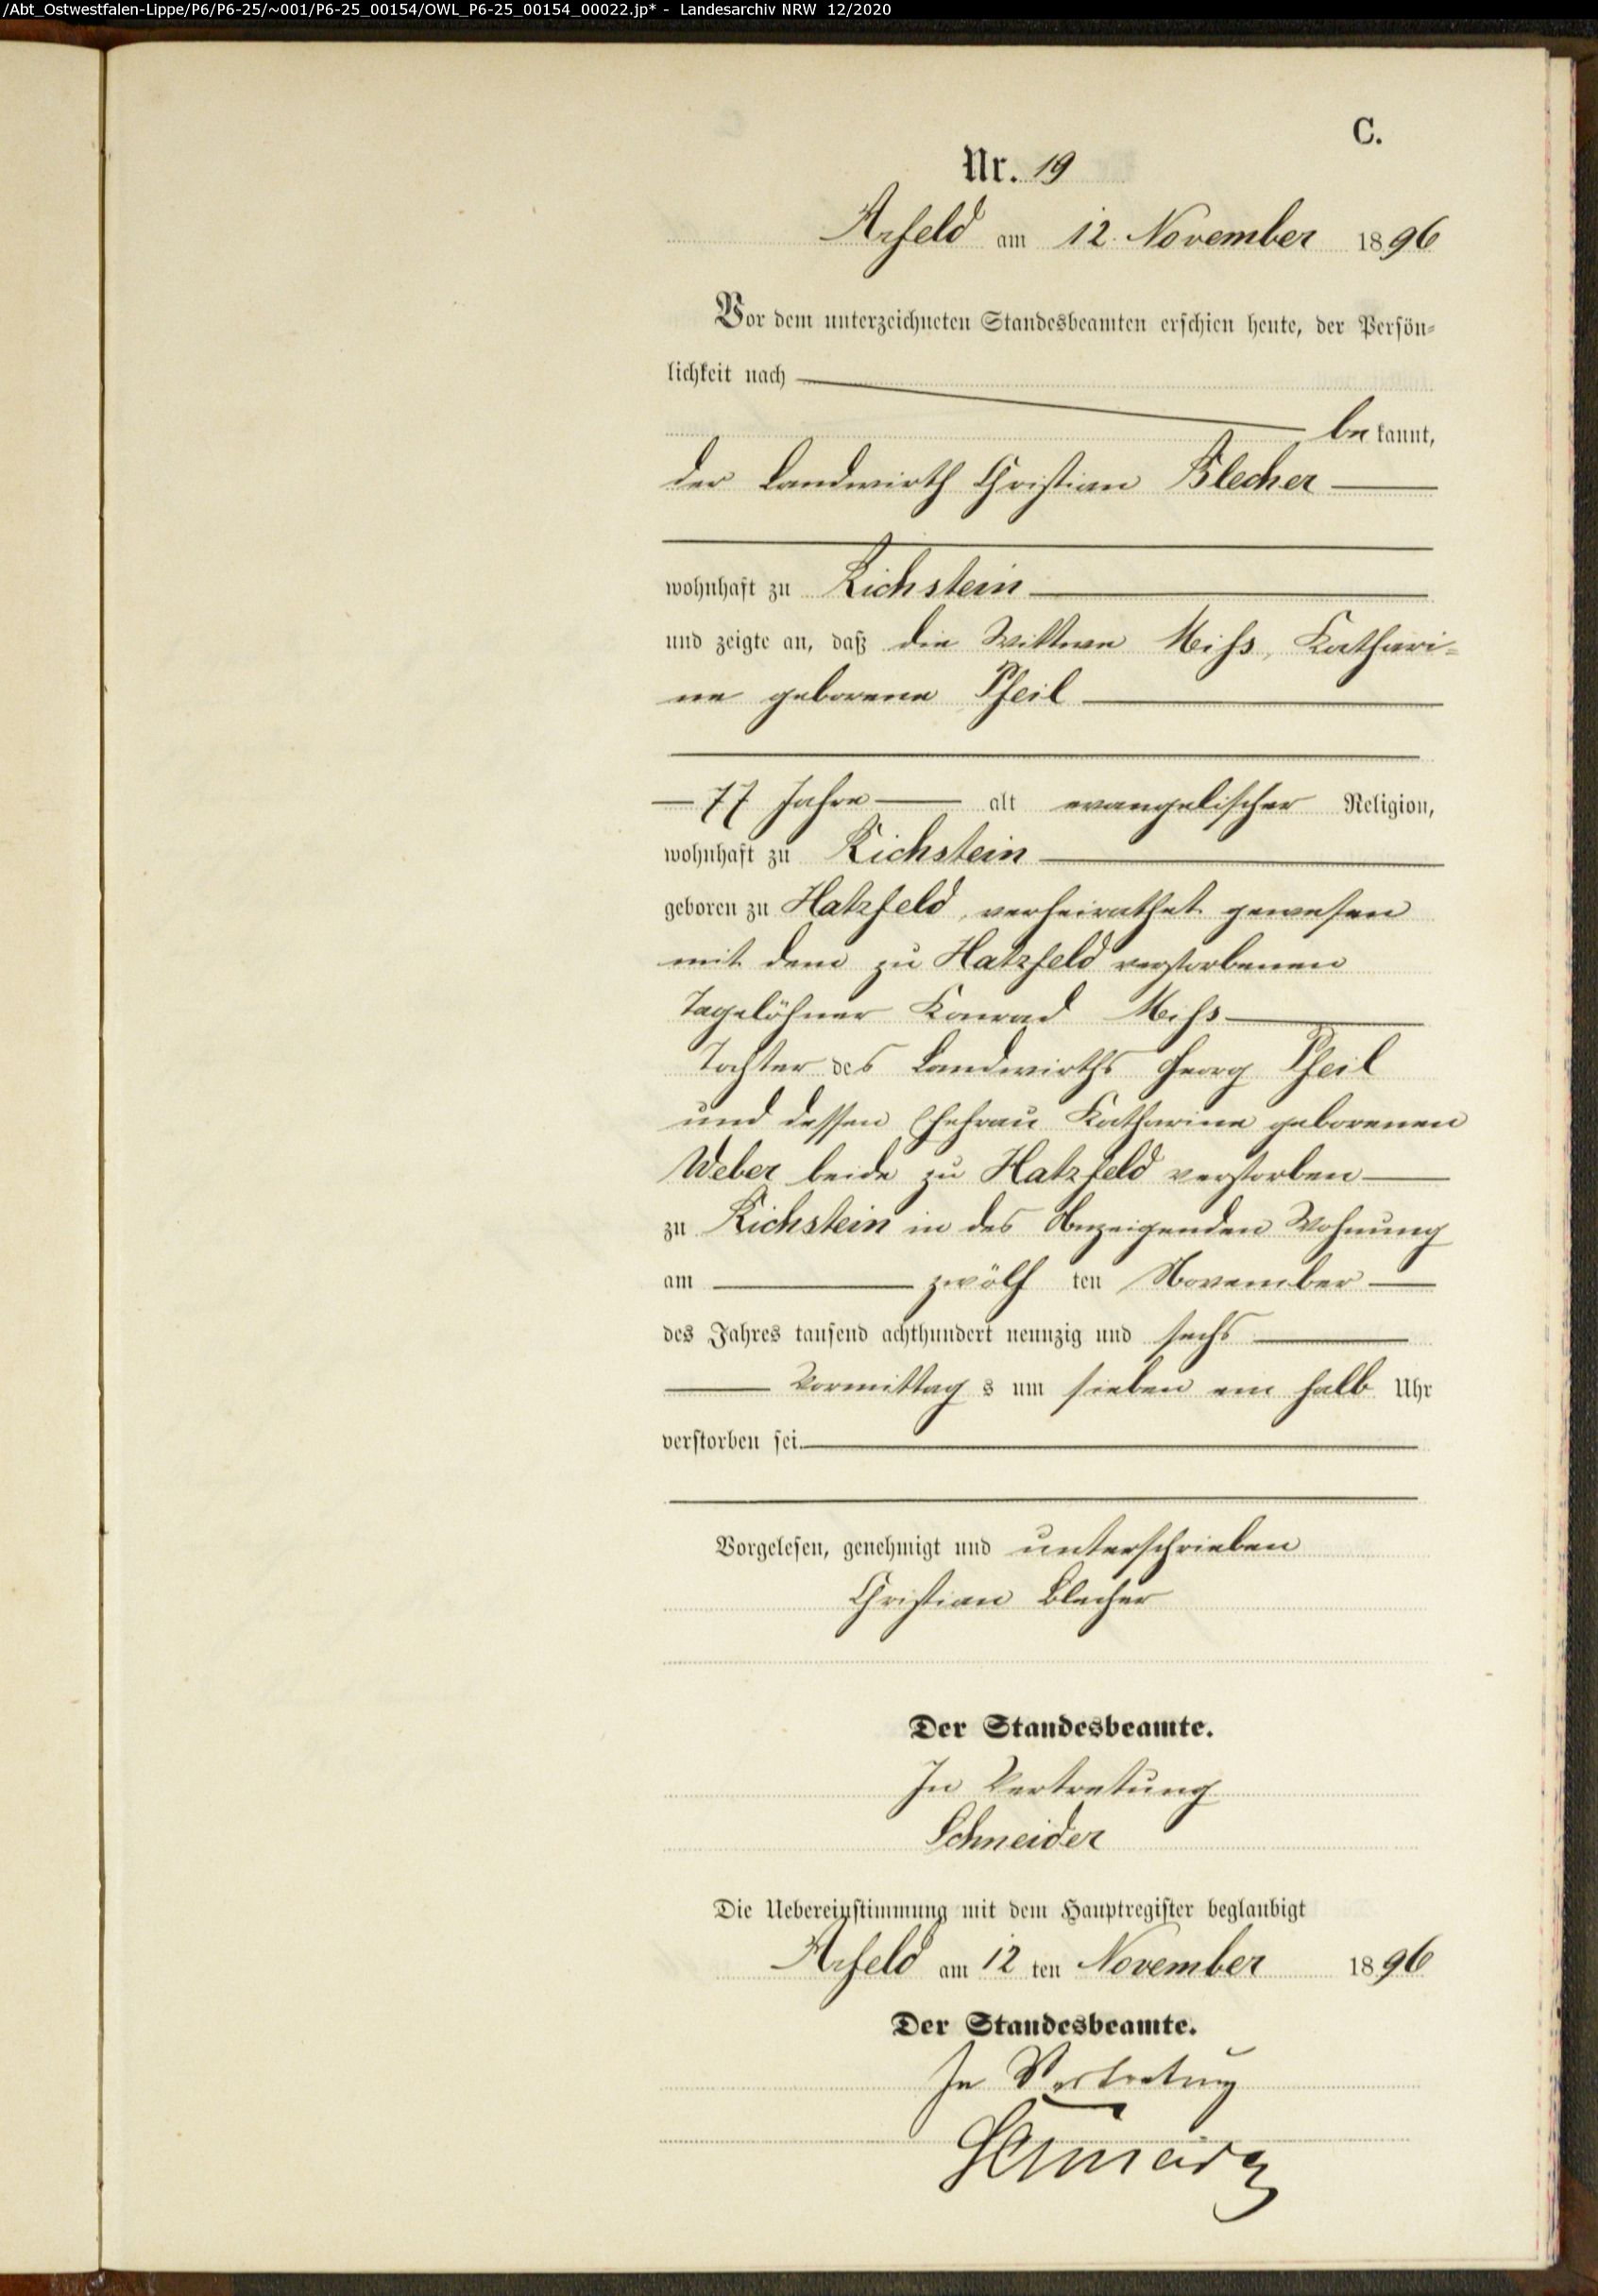 /Abt_Ostwestfalen-Lippe/P6/P6-25/~001/P6-25_00154/OWL_P6-25_00154_00022.jp* - Landesarchiv NRW 12/2020
C.
Nr. 19
Arfeld am 12. November 1896
Vor dem unterzeichneten Standesbeamten erschien heute, der Persön-
lichkeit nach
bekannt,
der Landwirth Christian Blecher
wohnhaft zu Richstein
und zeigte an, daß die Wittwe Miss, Kathari-
ne geborene Pfeil
77 Jahre alt evangelischer Religion,
wohnhaft zu Richstein
geboren zu Hatzfeld, verheirathet gewesen
mit dem zu Hatzfeld verstorbenen
Tagelöhner Konrad Miss
Tochter des Landwirths Georg Pfeil
und dessen Ehefrau Katharine geborenen
Weber beide zu Hatzfeld verstorben
zu Richstein in des Anzeigenden Wohnung
am zwölf ten November
des Jahres tausend achthundert neunzig und sechs
Vormittags um sieben ein halb Uhr
verstorben sei.
Vorgelesen, genehmigt und unterschrieben
Christian Blecher
Der Standesbeamte.
In Vertretung
Schneider
Die Uebereinstimmung mit dem Hauptregister beglaubigt
Arfeld am 12 ten November 1896
Der Standesbeamte.
In Vertretung
Schneider